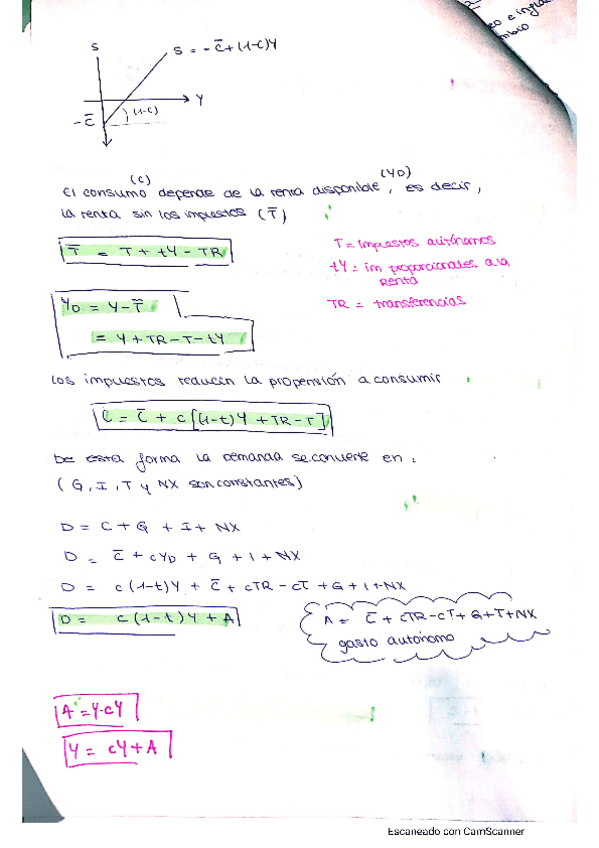 eo e ingre
mbio
S
S = - C̄ + (1-c)Y
Y
(1-c)
- C̄
(C)
(YD)
El consumo depende de la renta disponible, es decir,
la renta sin los impuestos (T̄)
T̄ = T + tY - TR
T = impuestos autónomos
tY = im proporcionales a la
renta
TR = transferencias
YD = Y - T̄
= Y + TR - T - tY
Los impuestos reducen la propensión a consumir
C = C̄ + c [(1-t)Y + TR - T]
De esta forma la demanda se convierte en:
(G, I, T y NX son constantes)
D = C + G + I + NX
D = C̄ + cYD + G + I + NX
D = c(1-t)Y + C̄ + cTR - cT + G + I + NX
D = c(1-t)Y + A
A = C̄ + cTR - cT + G + I + NX
gasto autónomo
A = Y - cY
Y = cY + A
Escaneado con CamScanner